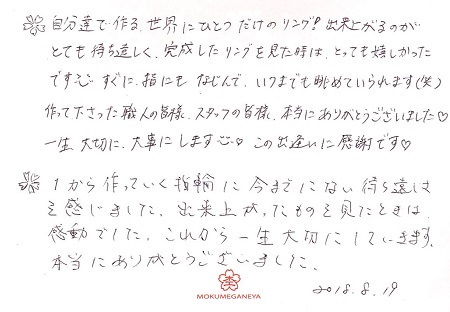 自分達で作る、世界にひとつだけのリング!出来上がるのが
とても待ち遠しく、完成したリングを見た時は、とっても嬉しかった
です すぐに、指にも なじんで、いつまでも眺めていられます(笑)
作って下さった職人の皆様、スタッフの皆様、本当にありがとうございました♡
一生、大切に、大事にします♡ この出逢いに感謝です♡
1から作っていく指輪に今までにない待ち遠しさ
を感じました。出来上がったものを見たときは、
感動でした。これから一生大切にしていきます。
本当にありがとうございました。
MOKUMEGANEYA
2018.8.19